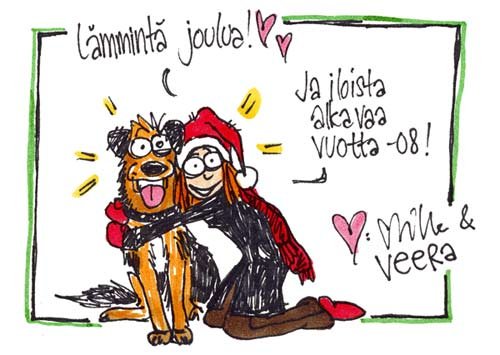 Lämmintä joulua!
Ja iloista
alkavaa
vuotta -08!
: Mille &
VEERA